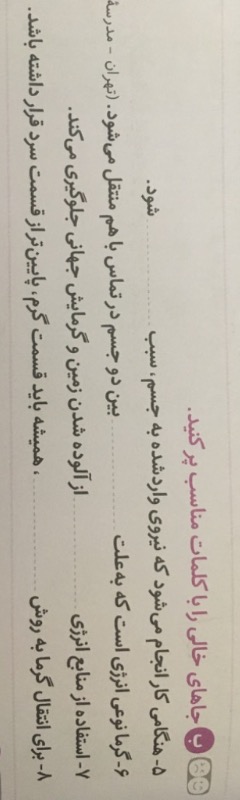 ب جاهای خالی را با کلمات مناسب پر کنید.
۵- هنگامی کار انجام می‌شود که نیروی وارد شده به جسم، سبب .......... شود.
۶- گرما نوعی انرژی است که به علت .......... بین دو جسم در تماس با هم منتقل می‌شود. (تهران - مدرسهٔ
۷- استفاده از منابع انرژی .......... از آلوده شدن زمین و گرمایش جهانی جلوگیری می‌کند.
۸- برای انتقال گرما به روش ..........، همیشه باید قسمت گرم، پایین‌تر از قسمت سرد قرار داشته باشد.